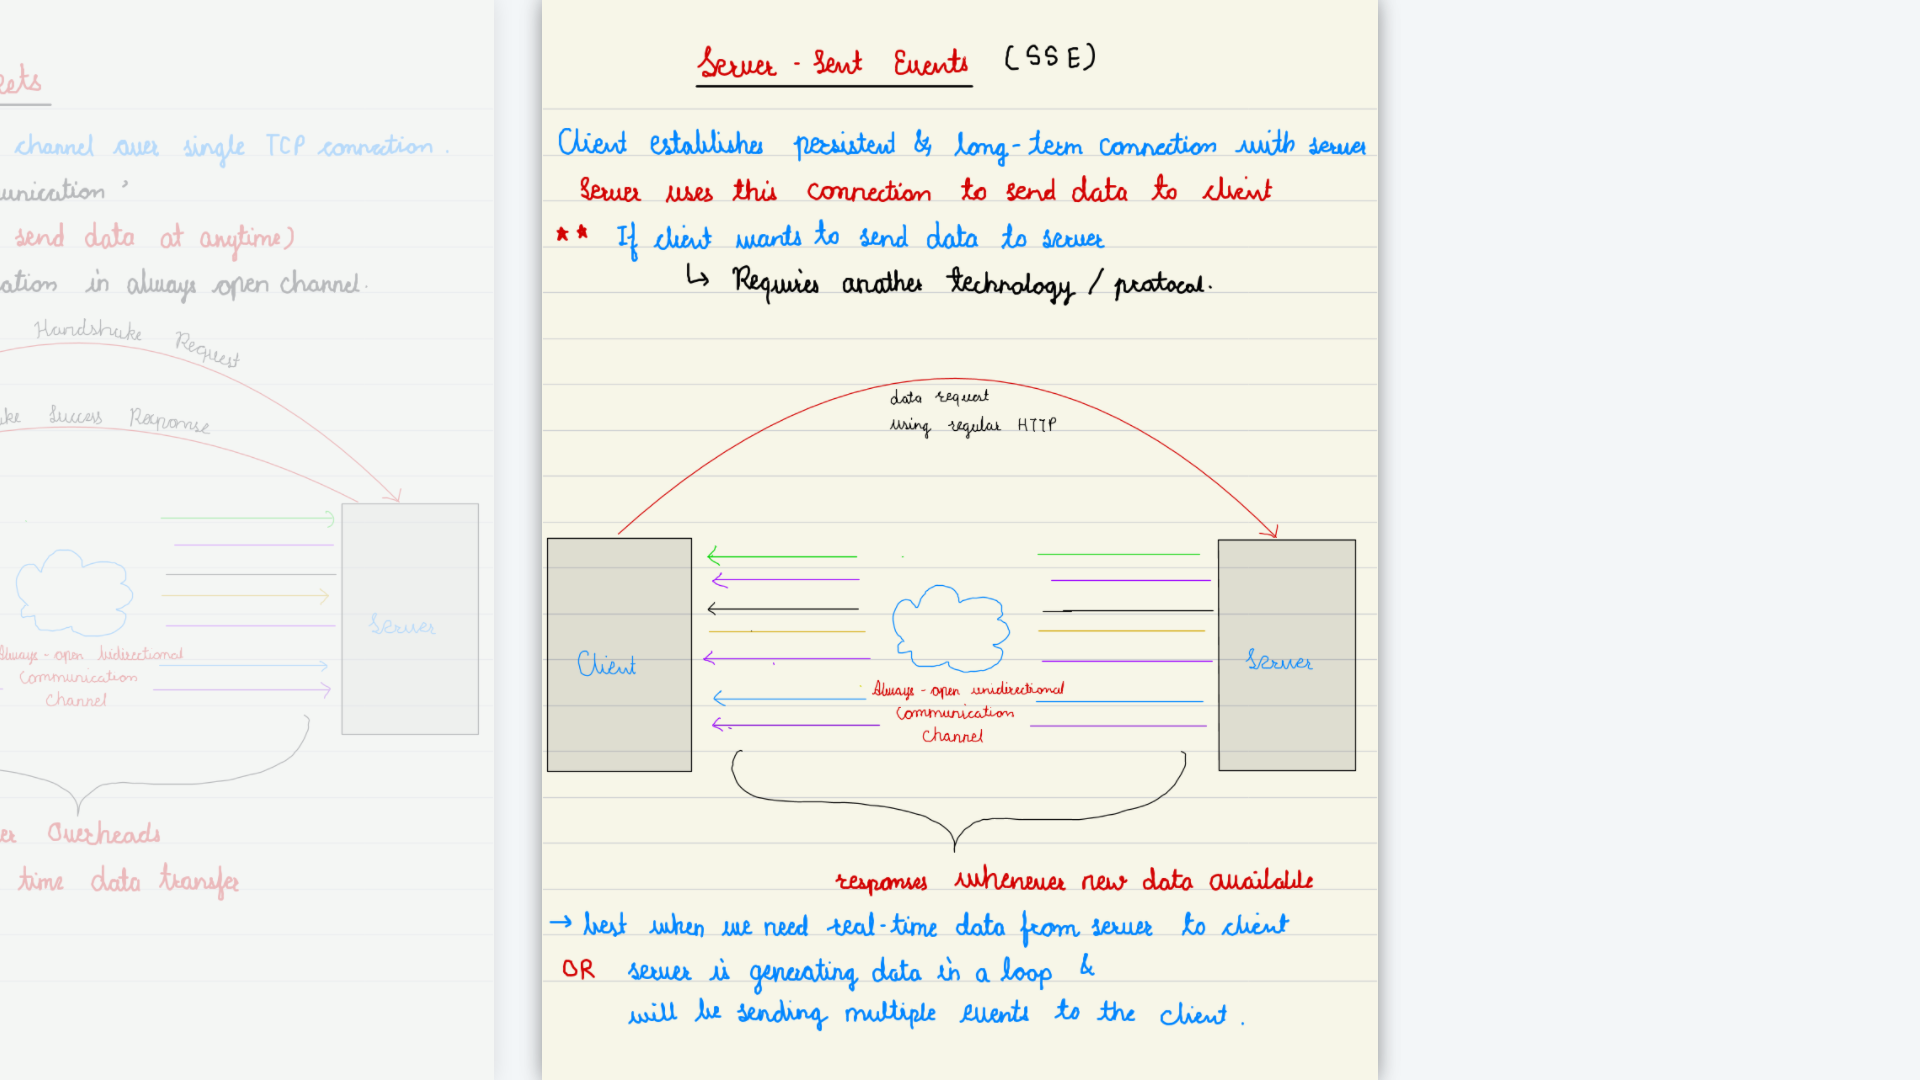 kets
channel over single TCP connection.
unication'
send data at anytime)
ation in always open channel.
Handshake Request
ke Success Response
Server
Always-open bidirectional
Communication
Channel
er Overheads
time data transfer
Server-Sent Events (SSE)
Client establishes persistent & long-term connection with server
Server uses this connection to send data to client
** If client wants to send data to server
↳ Requires another technology / protocol.
data request
using regular HTTP
Client
Server
Always-open unidirectional
Communication
Channel
responses whenever new data available
→ best when we need real-time data from server to client
OR server is generating data in a loop &
will be sending multiple events to the client.